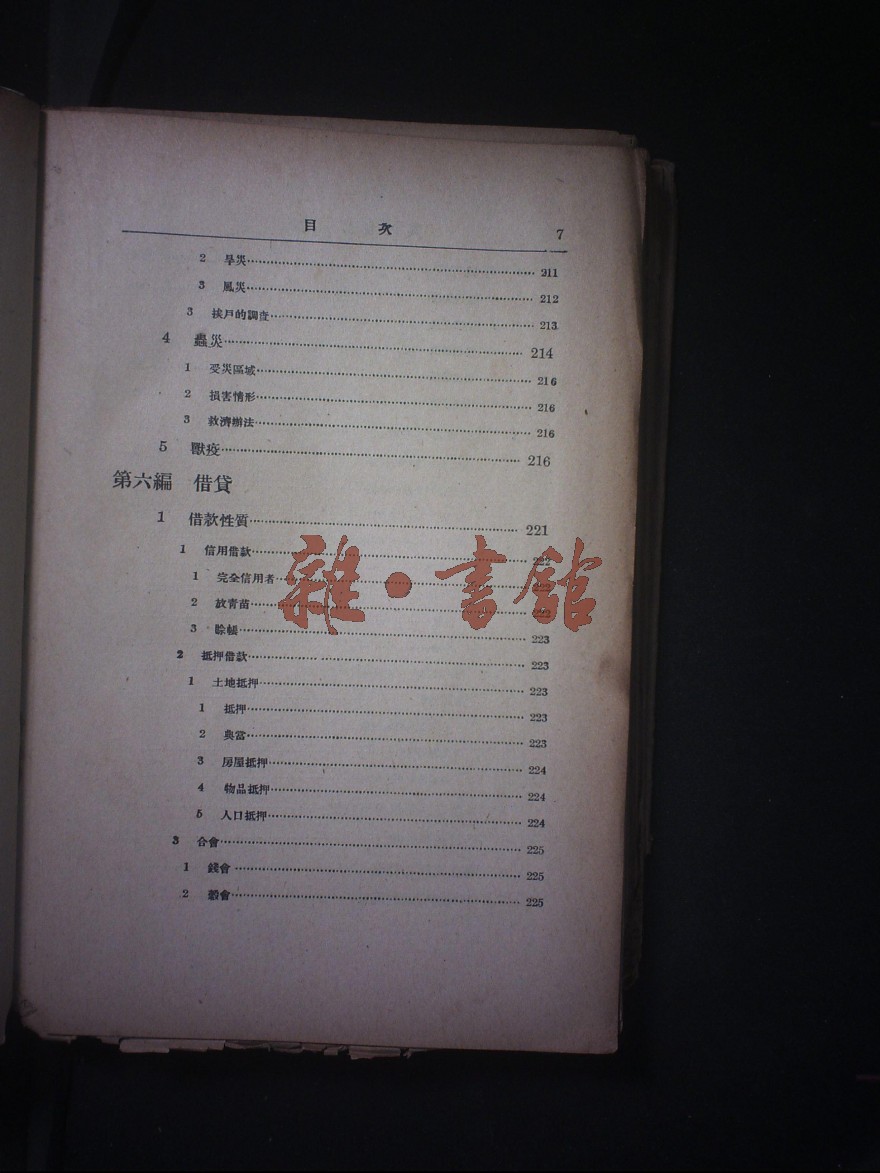 目 次 7
2 旱災 211
3 風災 212
3 挨戶的調査 213
4 蟲災 214
1 受災區域 216
2 損害情形 216
3 救濟辦法 216
5 獸疫 216
第六編 借貸
1 借款性質 221
1 信用借款 222
1 完全信用者 222
2 放青苗 222
雜·書館
3 賒帳 223
2 抵押借款 223
1 土地抵押 223
1 抵押 223
2 典當 223
3 房屋抵押 224
4 物品抵押 224
5 人口抵押 224
3 合會 225
1 錢會 225
2 穀會 225